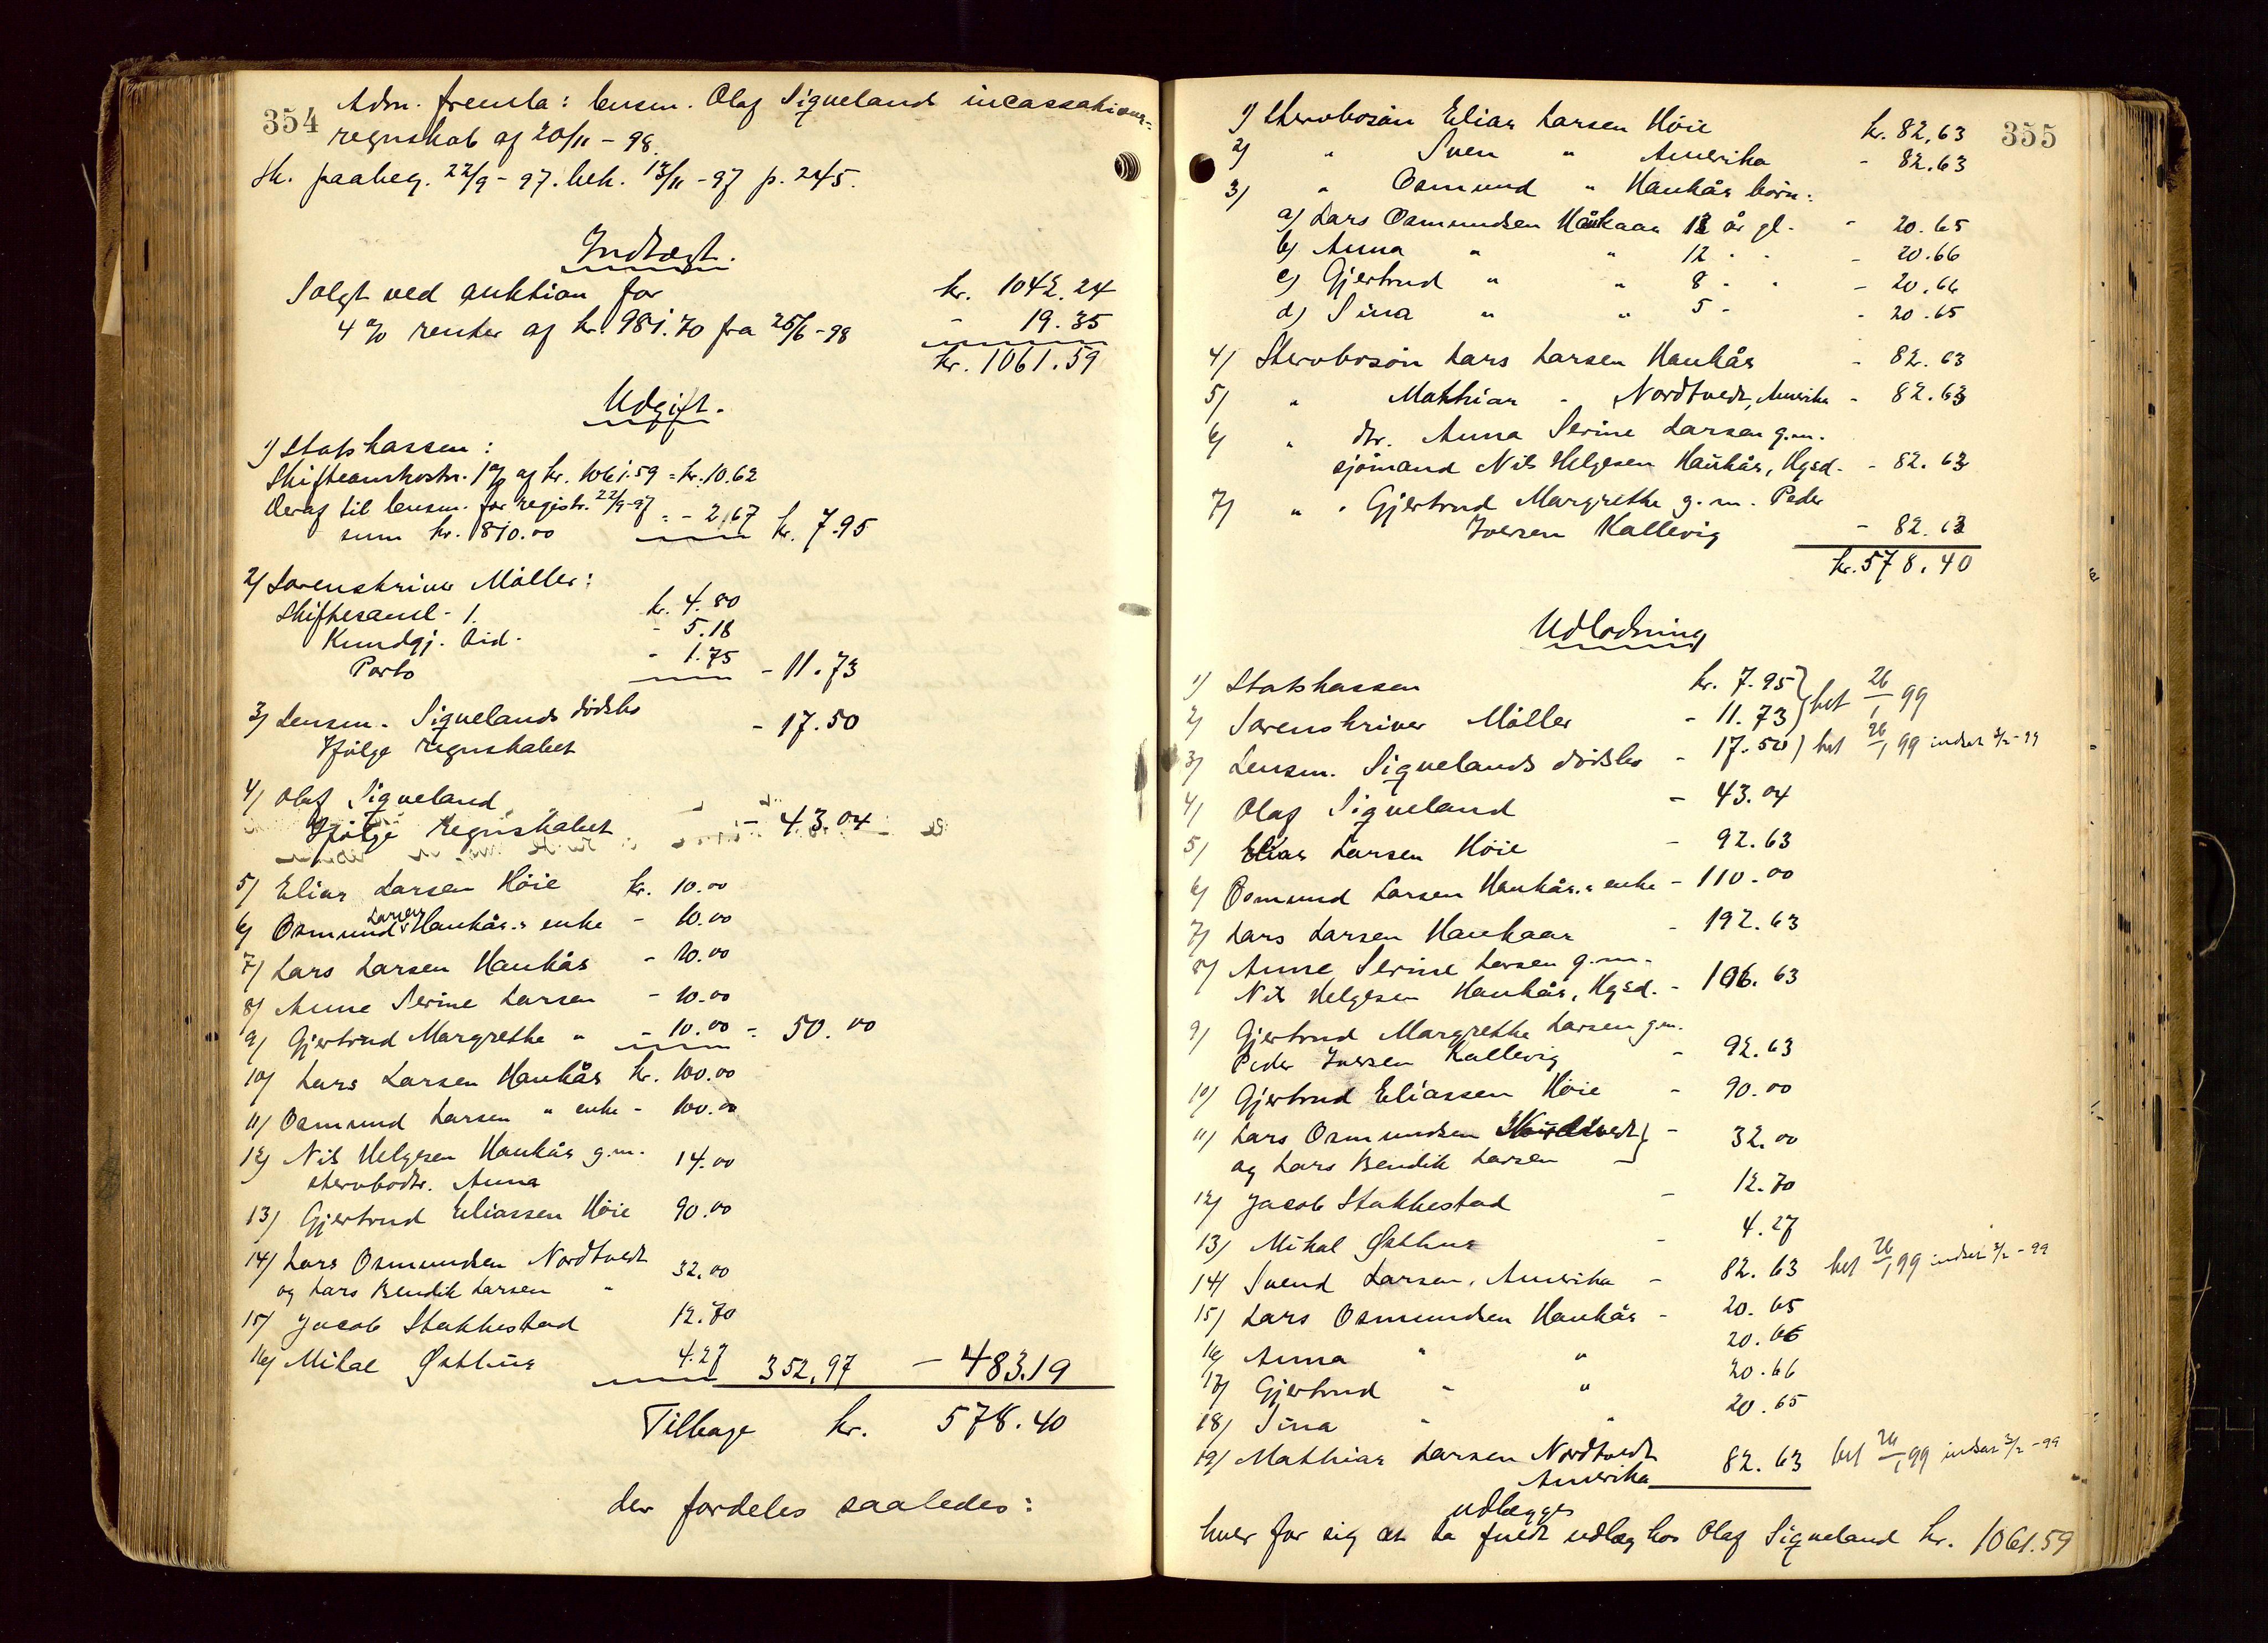 354
Adm. fremla: lensm. Olaf Siqueland incassations-
regnskab af 20/11 - 98.
Sk. paabeg. 22/9 - 97. bek. 13/11 - 97 p. 245.
Indtægt.
Solgt ved auktion for kr. 1042.24
4 % renter af kr. 981.70 fra 25/6 - 98 - 19.35
kr. 1061.59
Udgift.
1) Statskassen:
Skifteomkostn. 1 % af kr. 1061.59 = kr. 10.62
Deraf til lensm. for registr. 22/9-97
sum kr. 810.00 = - 2.67 kr. 7.95
2) Sorenskriver Möller:
Skiftesaml. 1. kr. 4.80
Kundgj. Tid. - 5.18
Porto - 1.75 - 11.73
3) Lensm. Siquelands dödsbo
Ifölge regnskabet - 17.50
4) Olaf Siqueland
Ifölge regnskabet - 43.04
5) Elias Larsen Höie kr. 10.00
6) Osmund Larsen Haukås.s enke - 10.00
7) Lars Larsen Haukås - 10.00
8) Anne Serine Larsen - 10.00
9) Gjertrud Margrethe " - 10.00 - 50.00
10) Lars Larsen Haukås kr. 100.00
11) Osmund Larsen " enke - 100.00
12) Nils Helgesen Haukås g.m. 14.00
stervbodtr. Anna
13) Gjertrud Eliassen Höie 90.00
14) Lars Osmundsen Nordtvedt
og Lars Bendik Larsen " 32.00
15) Jacob Stakkestad 12.70
16) Mikal Østhus 4.27 352.97 - 483.19
Tilbage kr. 578.40
der fordeles saaledes:
355
1) Stervbosön Elias Larsen Höie kr. 82,63
2) " Sven " Amerika - 82.63
3) " Osmund " Haukås börn:
a) Lars Osmundsen Haukaas 13 år gl. - 20.65
b) Anna " " 12 " " - 20.66
c) Gjertrud " " 8 " " - 20.66
d) Sina " " 5 " - 20.65
4) Stervbosön Lars Larsen Haukås - 82.63
5) " Mathias - Nordtvedt, Amerika - 82.63
6) " dtr. Anna Serine Larsen g.m.
sjömand Nils Helgesen Haukås, Hgsd. - 82.63
7) " " Gjertrud Margrethe g.m. Peder
Iversen Kallevig - 82.63
kr. 578.40
Udlodning
1) Statskassen kr. 7.95 } bet 26/1 99
2) Sorenskriver Möller - 11.73
3) Lensm. Siquelands dödsbo - 17.50) bet 26/1 99 indsat 3/2 - 99
4) Olaf Siqueland - 43.04
5) Elias Larsen Höie - 92.63
6) Osmund Larsen Haukås.s enke - 110.00
7) Lars Larsen Haukaas - 192.63
8) Anne Serine Larsen g.m.
Nils Helgesen Haukås, Hgsd. - 106.63
9) Gjertrud Margrethe Larsen g.m.
Peder Iversen Kallevig - 92.63
10) Gjertrud Eliassen Höie - 90.00
11) Lars Osmundsen Nordtvedt } -
og Lars Bendik Larsen 32.00
12) Jacob Stakkestad - 12.70
13) Mikal Østhus - 4.27
14) Svend Larsen, Amerika - 82.63 bet 26/1 99 indsat 3/2 - 99
15) Lars Osmundsen Haukås - 20.65
16) Anna " " 20.66
17) Gjertrud " " 20.66
18) Sina " " 20.65
19) Mathias Larsen Nordtvedt
Amerika 82.63 bet 26/1 99 indsat 3/2 - 99
udlægges
hver for sig at ta fuldt udlæg hos Olaf Siqueland kr. 1061.59